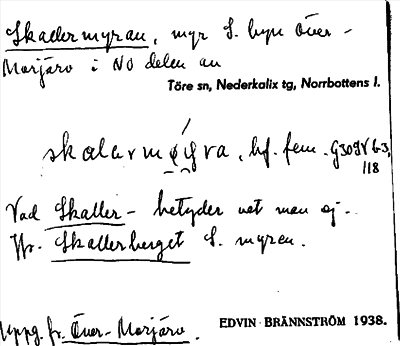 Skallermyran, myr S. byn Över-
Morjärv i NO delen av
Töre sn, Nederkalix tg, Norrbottens l.
hf. fem.
Vad Skaller- betyder vet man ej.
Jfr. Skallerberget S. myren.
Uppg. fr. Över-Morjärv.
EDVIN BRÄNNSTRÖM 1938.